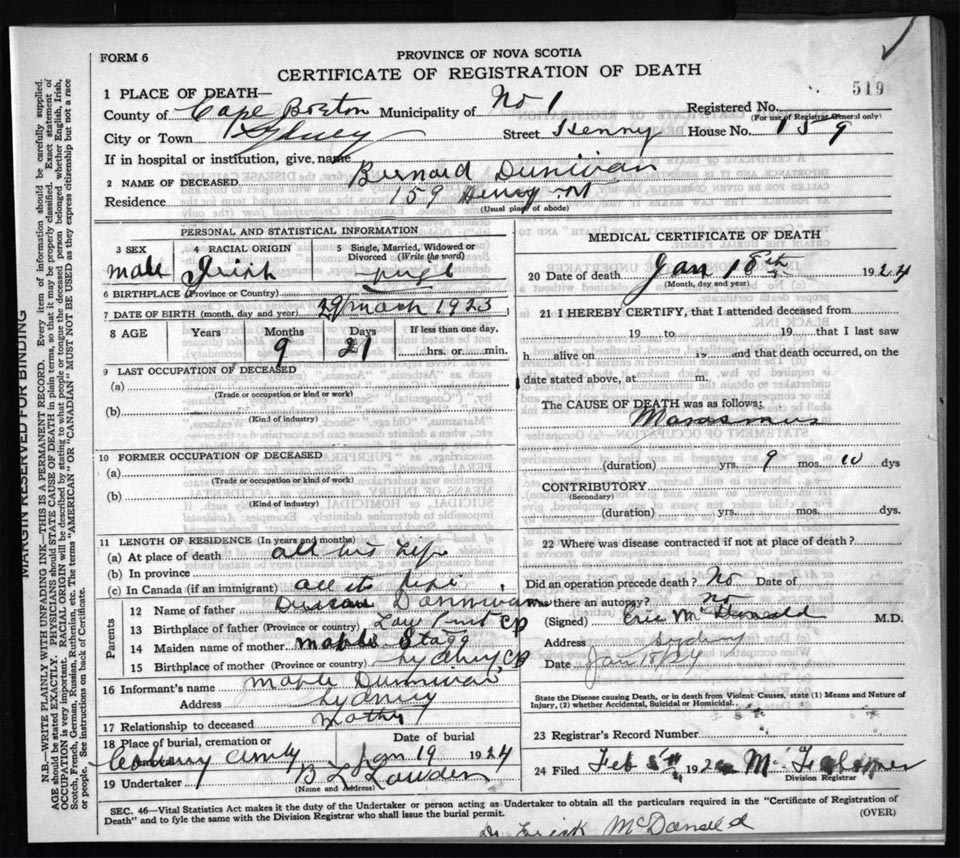 PROVINCE OF NOVA SCOTIA
FORM 6
CERTIFICATE OF REGISTRATION OF DEATH
519
1 PLACE OF DEATH—
County of Cape Breton Municipality of No 1 Registered No.
(For use of Registrar General only)
City or Town Sydney Street Henry House No. 159
If in hospital or institution, give name
2 NAME OF DECEASED Bernard Dunivan
Residence 159 Henry St
(Usual place of abode)
PERSONAL AND STATISTICAL INFORMATION
3 SEX 4 RACIAL ORIGIN 5 Single, Married, Widowed or Divorced (Write the word)
male Irish single
6 BIRTHPLACE (Province or Country)
7 DATE OF BIRTH (month, day and year) 29 March 1923
8 AGE Years Months Days If less than one day,
9 21 hrs. or min.
9 LAST OCCUPATION OF DECEASED
(a)
(Trade or occupation or kind or work)
(b)
(Kind of industry)
10 FORMER OCCUPATION OF DECEASED
(a)
(Trade or occupation or kind of work)
(b)
(Kind of industry)
11 LENGTH OF RESIDENCE (In years and months)
(a) At place of death all his life
(b) In province
(c) In Canada (if an immigrant) all
Parents
12 Name of father Duncan Donnivan
13 Birthplace of father (Province or country) CB
14 Maiden name of mother Mable Stagg
15 Birthplace of mother (Province or country) Sydney CB
16 Informant's name Mable Dunnivan
Address Sydney
17 Relationship to deceased Mother
18 Place of burial, cremation or Date of burial
Jan 19 1924
19 Undertaker B L Lowden
(Name and Address)
MEDICAL CERTIFICATE OF DEATH
20 Date of death Jan 18th 1924
(Month, day and year)
21 I HEREBY CERTIFY, that I attended deceased from
19 to 19 that I last saw
h alive on 19 and that death occurred, on the
date stated above, at m.
The CAUSE OF DEATH was as follows:
Marasmus
(duration) yrs. 9 mos. dys
CONTRIBUTORY
(Secondary)
(duration) yrs. mos. dys.
22 Where was disease contracted if not at place of death?
Did an operation precede death? No Date of
there an autopsy? No
(Signed) Eric McDonald M.D.
Address Sydney
Date Jan 18/24
State the Disease causing Death, or in death from Violent Causes, state (1) Means and Nature of
Injury, (2) whether Accidental, Suicidal or Homicidal.
23 Registrar's Record Number
24 Filed Feb 192
Division Registrar
SEC. 46—Vital Statistics Act makes it the duty of the Undertaker or person acting as Undertaker to obtain all the particulars required in the "Certificate of Registration of
Death" and to fyle the same with the Division Registrar who shall issue the burial permit.
(OVER)
Dr McDonald
MARGIN RESERVED FOR BINDING
N.B.—WRITE PLAINLY WITH UNFADING INK—THIS IS A PERMANENT RECORD. Every item of information should be carefully supplied.
AGE should be stated EXACTLY. PHYSICIANS should STATE CAUSE OF DEATH in plain terms, so that it may be properly classified. Exact statement of
OCCUPATION is very important. RACIAL ORIGIN will be described by stating to what people or tongue the deceased person belonged whether English, Irish,
Scotch, French, German, Russian, Ruthenian, etc. The terms "AMERICAN" OR "CANADIAN" MUST NOT BE USED as they express citizenship but not a race
or people. See instructions on back of Certificate.